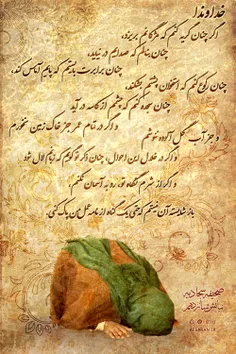 خداوندا
اگر چنان گریه کنم که مژگانم بریزد،
چنان بنالم که صدایم در نیاید،
چنان برابرت بایستم که پاهایم آماس کند،
چنان رکوع کنم که استخوان پشتم بشکند،
چنان سجده کنم که چشمم از کاسه درآید
و اگر در تمام عمر جز خاک زمین نخورم
و جز آب گل آلوده ننوشم
و اگر در خلال این احوال، چنان ذکر تو گویم که زبانم لال شود
و اگر از شرم نگاه تو، رو به آسمان نکنم،
باز شایسته آن نیستم که حتی یک گناه از نامه عمل من پاک کنی.
صحیفه سجادیه
نیایش شانزدهم